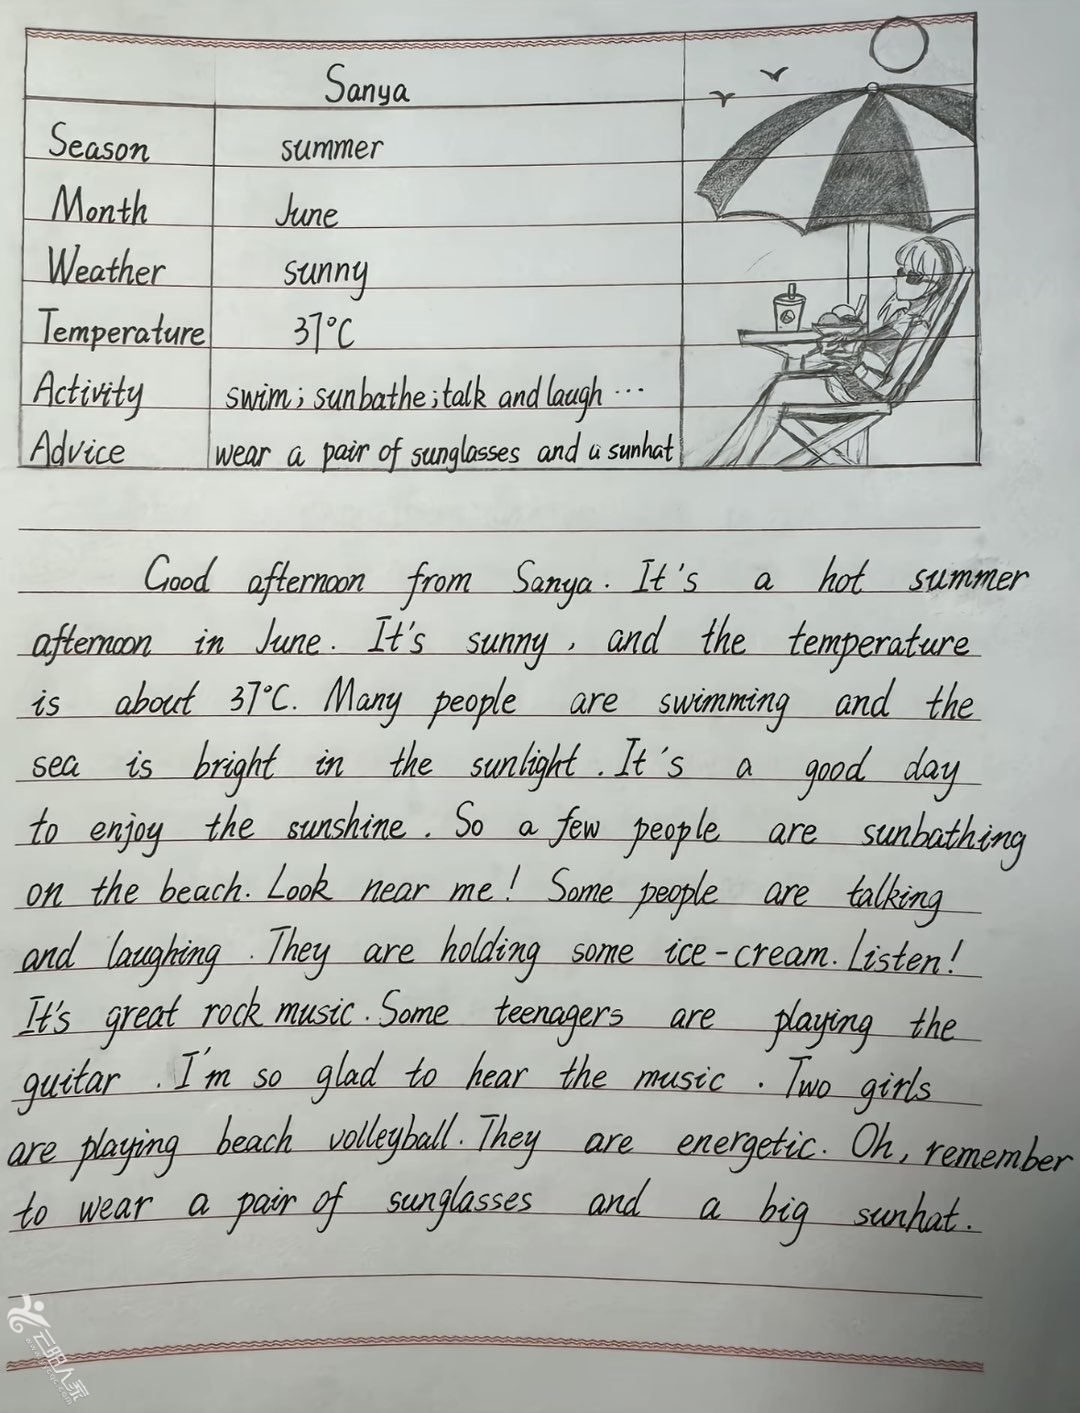 Sanya
Season summer
Month June
Weather sunny
Temperature 37°C
Activity swim; sunbathe; talk and laugh ...
Advice wear a pair of sunglasses and a sunhat
Good afternoon from Sanya. It's a hot summer
afternoon in June. It's sunny, and the temperature
is about 37°C. Many people are swimming and the
sea is bright in the sunlight. It's a good day
to enjoy the sunshine. So a few people are sunbathing
on the beach. Look near me! Some people are talking
and laughing. They are holding some ice-cream. Listen!
It's great rock music. Some teenagers are playing the
guitar. I'm so glad to hear the music. Two girls
are playing beach volleyball. They are energetic. Oh, remember
to wear a pair of sunglasses and a big sunhat.